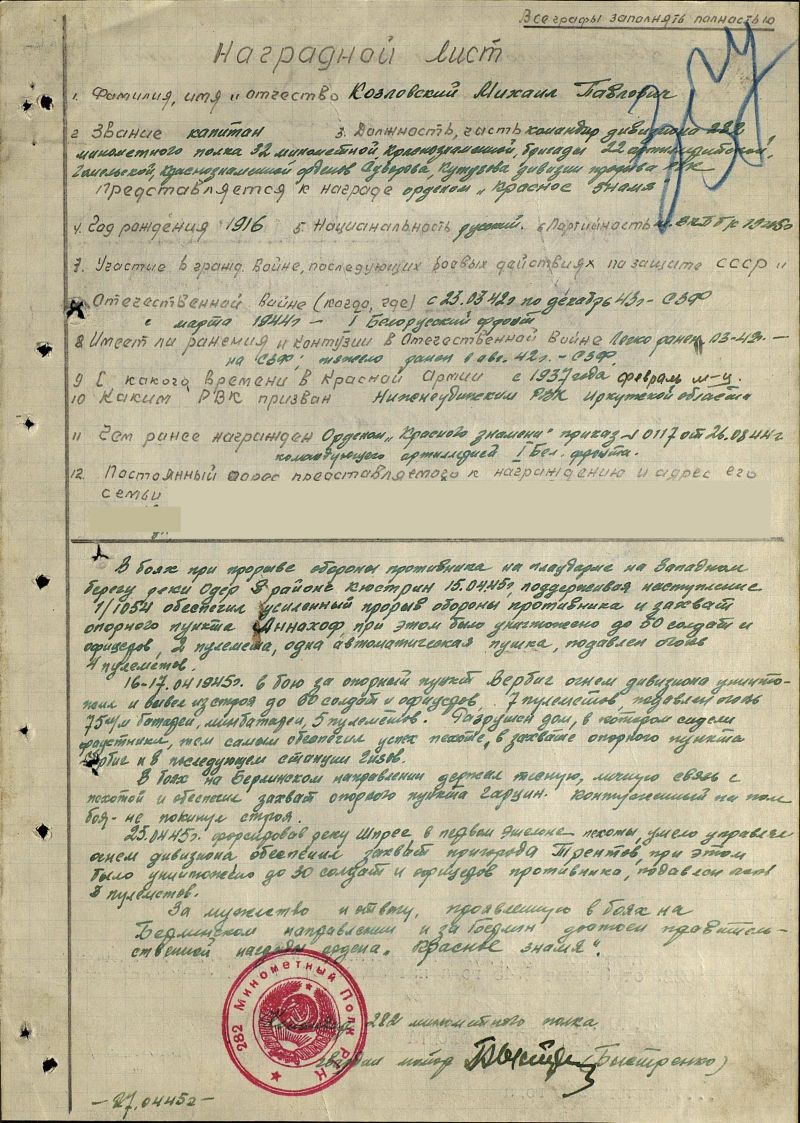 Все графы заполнять полностью
Наградной лист
1. Фамилия, имя и отчество Козловский Михаил Павлович
2 Звание капитан 3. Должность, часть командир дивизиона 282
минометного полка 32 минометной Краснознаменной, бригады 22 артиллерийской,
Гомельской, Краснознаменной орденов Суворова, Кутузова дивизии прорыва РГК
представляется к награде орденом „Красное знамя"
4. Год рождения 1916 5. Национальность русский. 6 Партийность ВКП б с 1945г
7. Участие в гражд. войне, последующих боевых действиях по защите СССР и
Отечественной войне (когда, где) с 23.03 42г по декабрь 43г - СЗФ
с марта 1944г - I Белорусский фронт
8 Имеет ли ранения и контузии в Отечественной войне Легко ранен 03-42г. -
на СЗФ; тяжело ранен в авг. 42г. - СЗФ,
9 С какого времени в Красной Армии с 1937 года февраль м-ц.
10 Каким РВК призван Нижнеудинским РВК Иркутской области
11 Чем ранее награжден Орденом „Красного знамени" приказ N 0117 от 26.08 44г
командующего артиллерией I Бел. фронта.
12. Постоянный адрес представляемого к награждению и адрес его
семьи
В боях при прорыве обороны противника на плацдарме на Западном
берегу реки Одер в районе Кюстрин 15.04.45г, поддерживая наступление
1/1054 обеспечил усиленный прорыв обороны противника и захват
опорного пункта Аннахоф, при этом было уничтожено до 60 солдат и
офицеров, 2 пулемета, одна автоматическая пушка, подавлен огонь
4 пулеметов.
16-17.04 1945г. в бою за опорный пункт Вербиг огнем дивизиона уничто-
жил и вывел из строя до 60 солдат и офицеров, 7 пулеметов, подавлен огонь
75 м/м батареи, минбатареи, 5 пулеметов. Разрушен дом, в котором сидели
фаустники, тем самым обеспечил успех пехоте, в захвате опорного пункта
Вербиг и в последующем станции Гузов.
В боях на Берлинском направлении держал тесную, личную связь с
пехотой и обеспечил захват опорного пункта Гарцин. Контуженный на поле
боя - не покинул строя.
23.04.45г. форсировав реку Шпрее в первом эшелоне пехоты, умело управляя
огнем дивизиона обеспечил захват пригорода Трептов, при этом
было уничтожено до 30 солдат и офицеров противника, подавлен огонь
3 пулеметов.
За мужество и отвагу, проявленную в боях на
Берлинском направлении и за Берлин достоен правитель-
ственной награды ордена „Красное знамя".
282 Минометный Полк РГК
Командир 282 минометного полка
гвардии майор (Быстренко)
- 27.04.45г -